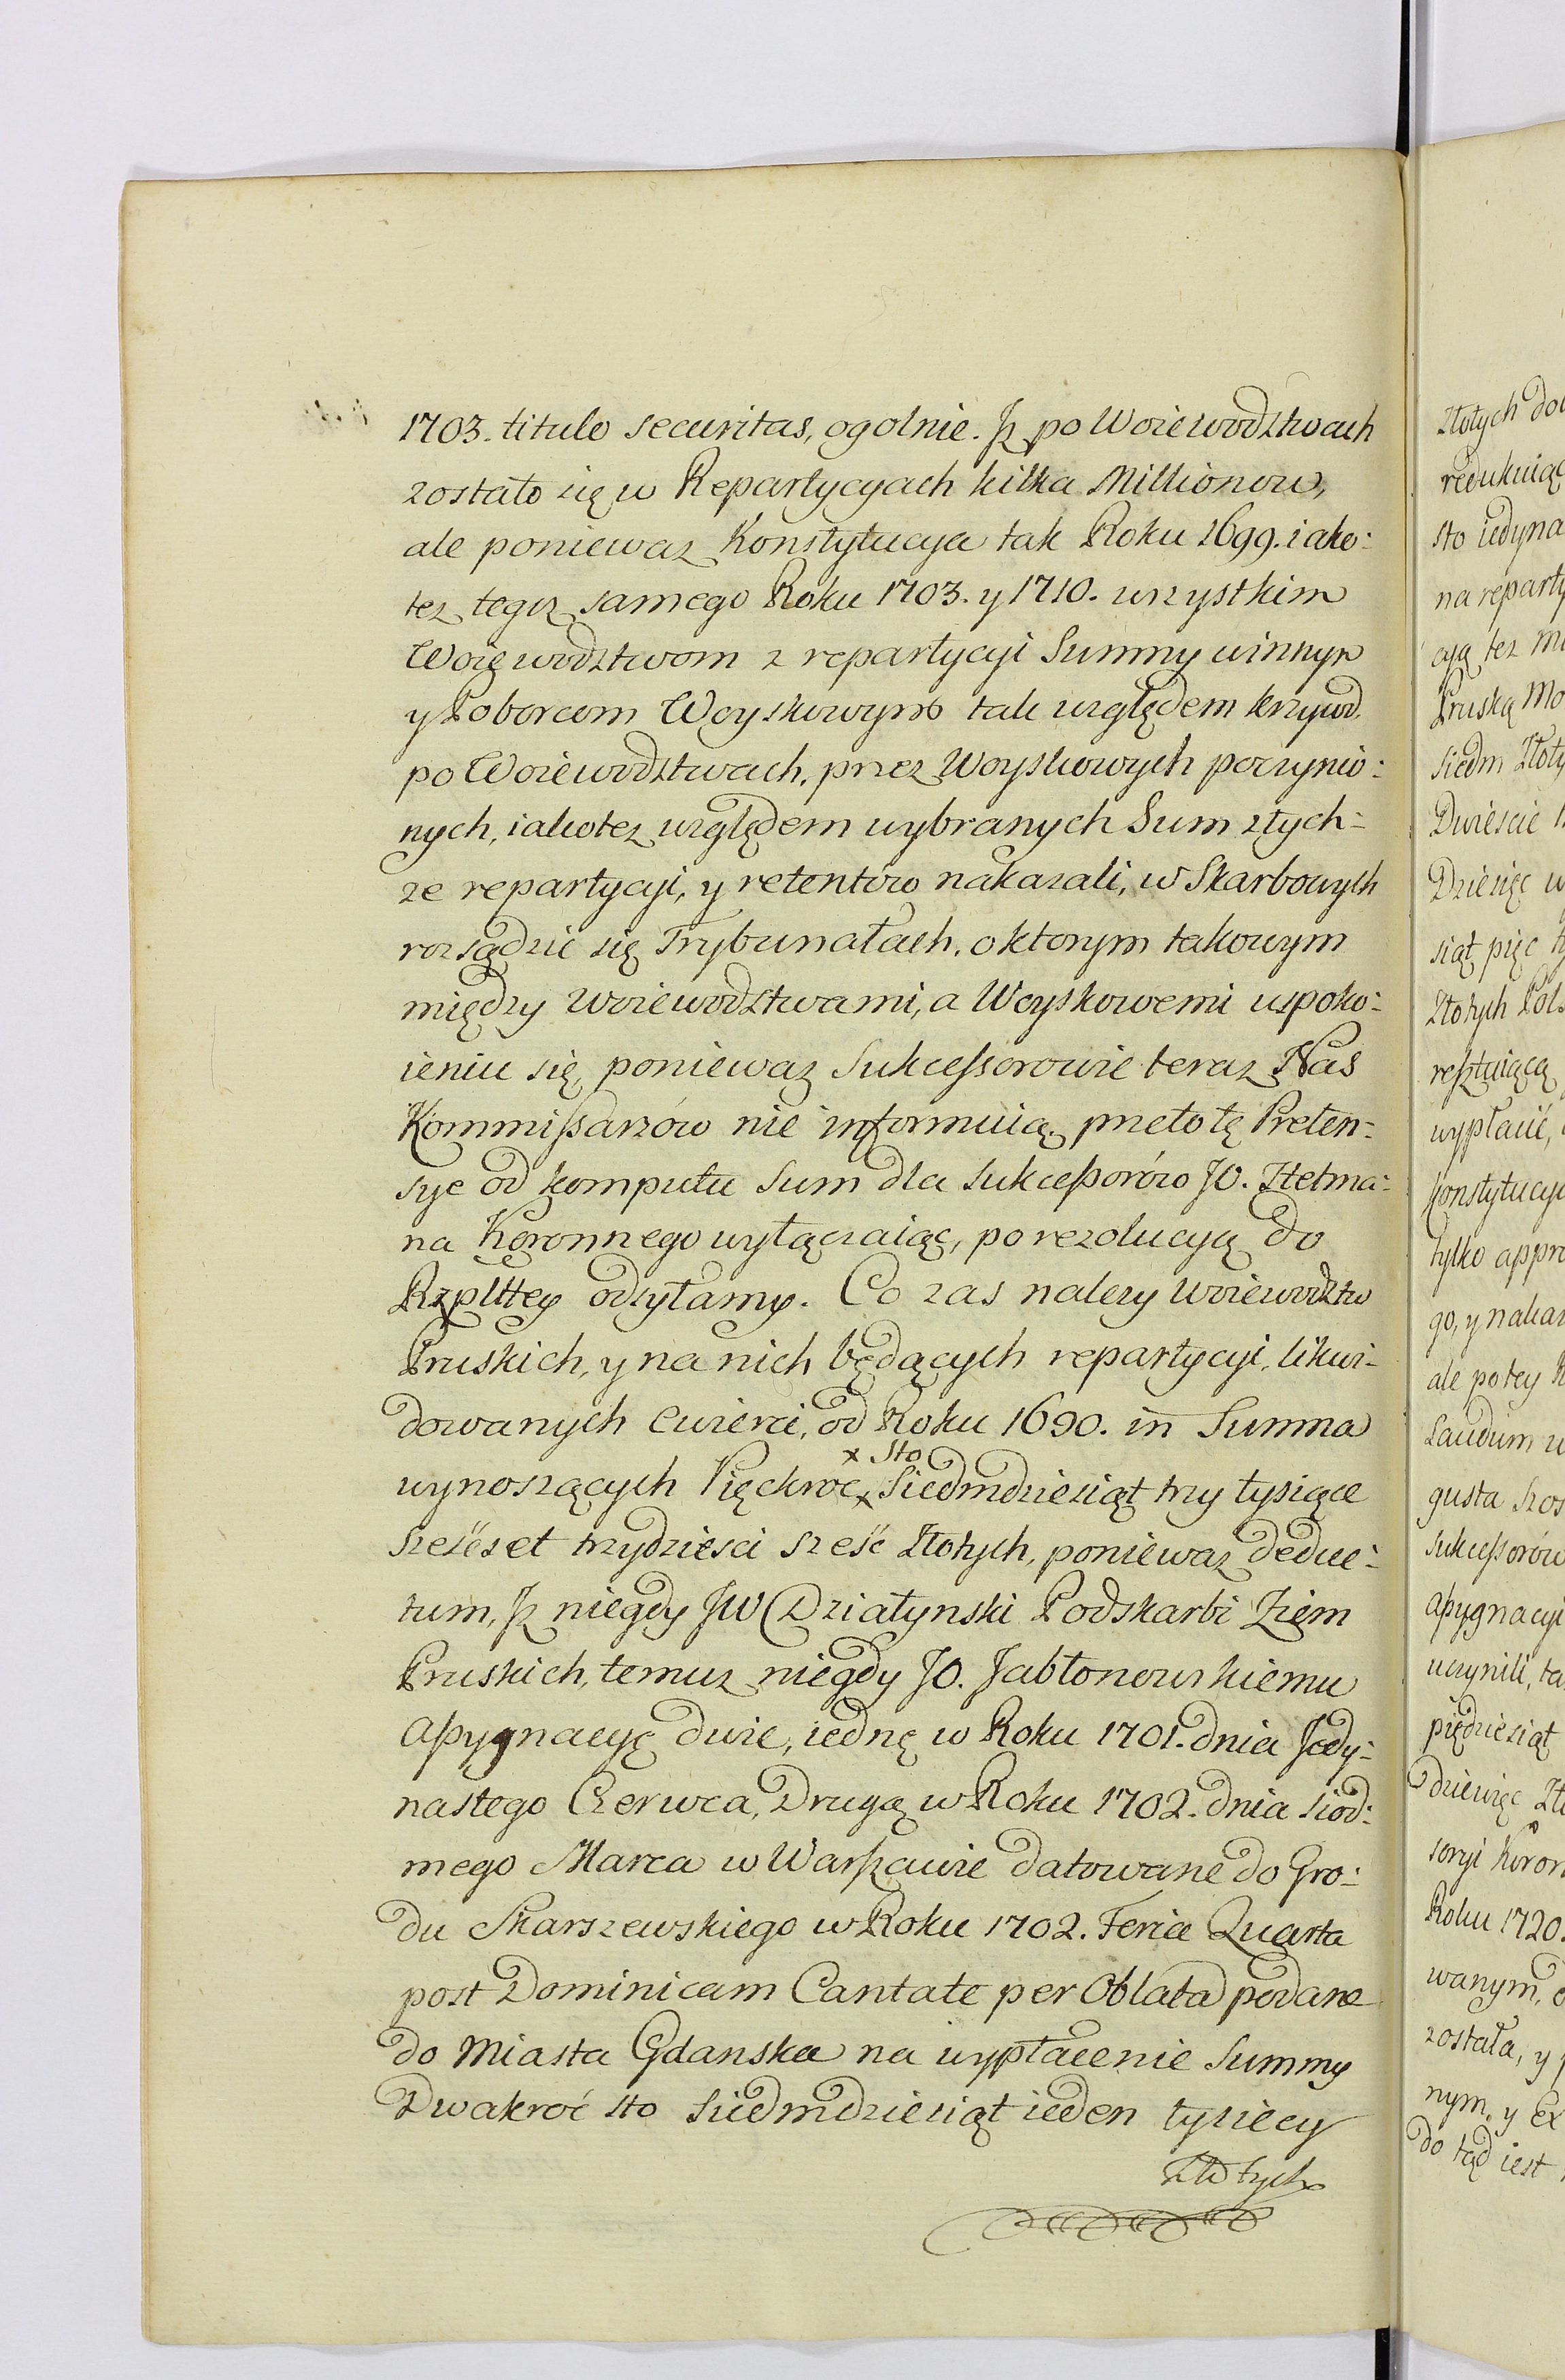 1703. titulo securitas, ogolnie. Jż po Woiewodztwach
zostało się w Repartycyach kilka Millionow,
ale poniewaz Konstytucya tak Roku 1699. iako:
tez tegoz samego Roku 1703. y 1710. wszystkim
Woiewodztwom z repartycyi Summy winnym
y Poborcom Woyskowym tak względem krzywd.
po Woiewodztwach, przez Woyskowych poczynio:
nych, iakotez względem wybranych Sum z tych-
ze repartycyi, y retentów nakazali, w Skarbowych
rozsądzic się Trybunałach, o ktorym takowym
między Woiewodztwami, a Woyskowemi uspoko:
ieniu się, poniewaz Sukcessorowie teraz Nas
Kommissarzów nie informuią, przeto tę Preten:
sye od komputu Sum dla Sukcessorów JO. Hetma:
na Koronnego wyłączaiąc, po rezolucyą do
Rzplttey odsyłamy. Co zas nalezy Woiewodztw
Pruskich, y na nich będących repartycyi, likwi-
dowanych Cwierci, od Roku 1690. in Summa
x Sto
wynoszących Pięckroć x Siedmdziesiąt trzy tysiące
szesćset trzydziesci sześć Złotych, poniewaz deduc:
tum, Jż niegdy JW Działynski Podskarbi Ziem
Pruskich, temuz niegdy JO. Jabłonowskiemu
Assygnacyę dwie, iednę w Roku 1701. dnia Jedy:
nastego Czerwca, Drugą w Roku 1702. dnia siod:
mego Marca w Warszawie datowane do Gro:
du Skarszewskiego w Roku 1702. Feria Quarta
post Dominicam Cantate per Oblata podane
do Miasta Gdanska na wypłacenie Summy
Dwakroć sto siedmdziesiąt ieden tysiecy
Złotych
Złotych
redukuiąc
sto iedyna
na reparty
cyą tez
Pruską Mo
siedm Złoty
Dwiescie
Dziesięc w
siąt pięc
Złotych Pol.
resztuiącą
wypłacić,
Konstytucye
tylko appro
go, y nakaz
ale potey
Laudum u
gusta szos
Sukcessorów
Assygnacyi
uczynili, ta
pięcdziesiąt
dziewięc Zło
soryi Koron
Roku 1720.
wanym,
została, y
nym, y Ex
do tąd iest